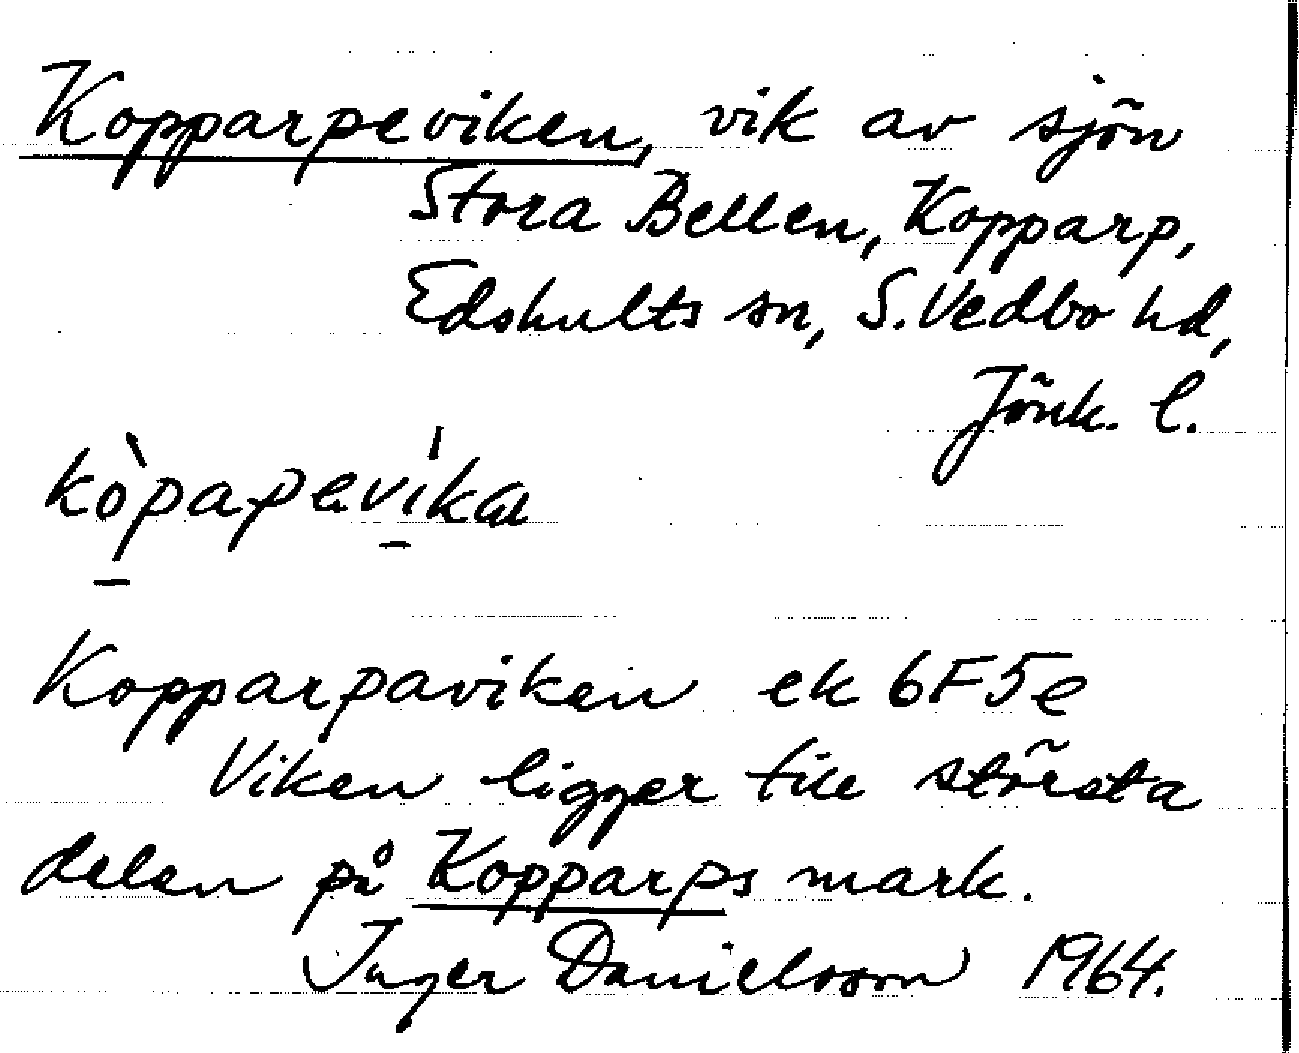 Kopparpeviken, vik av sjön
Stora Bellen, Kopparp,
Edshults sn, S. Vedbo hd,
Jönk. l.
kòpapavíka
Kopparpaviken ek 6F5e
Viken ligger till största
delen på Kopparps mark.
Inger Danielsson 1964.